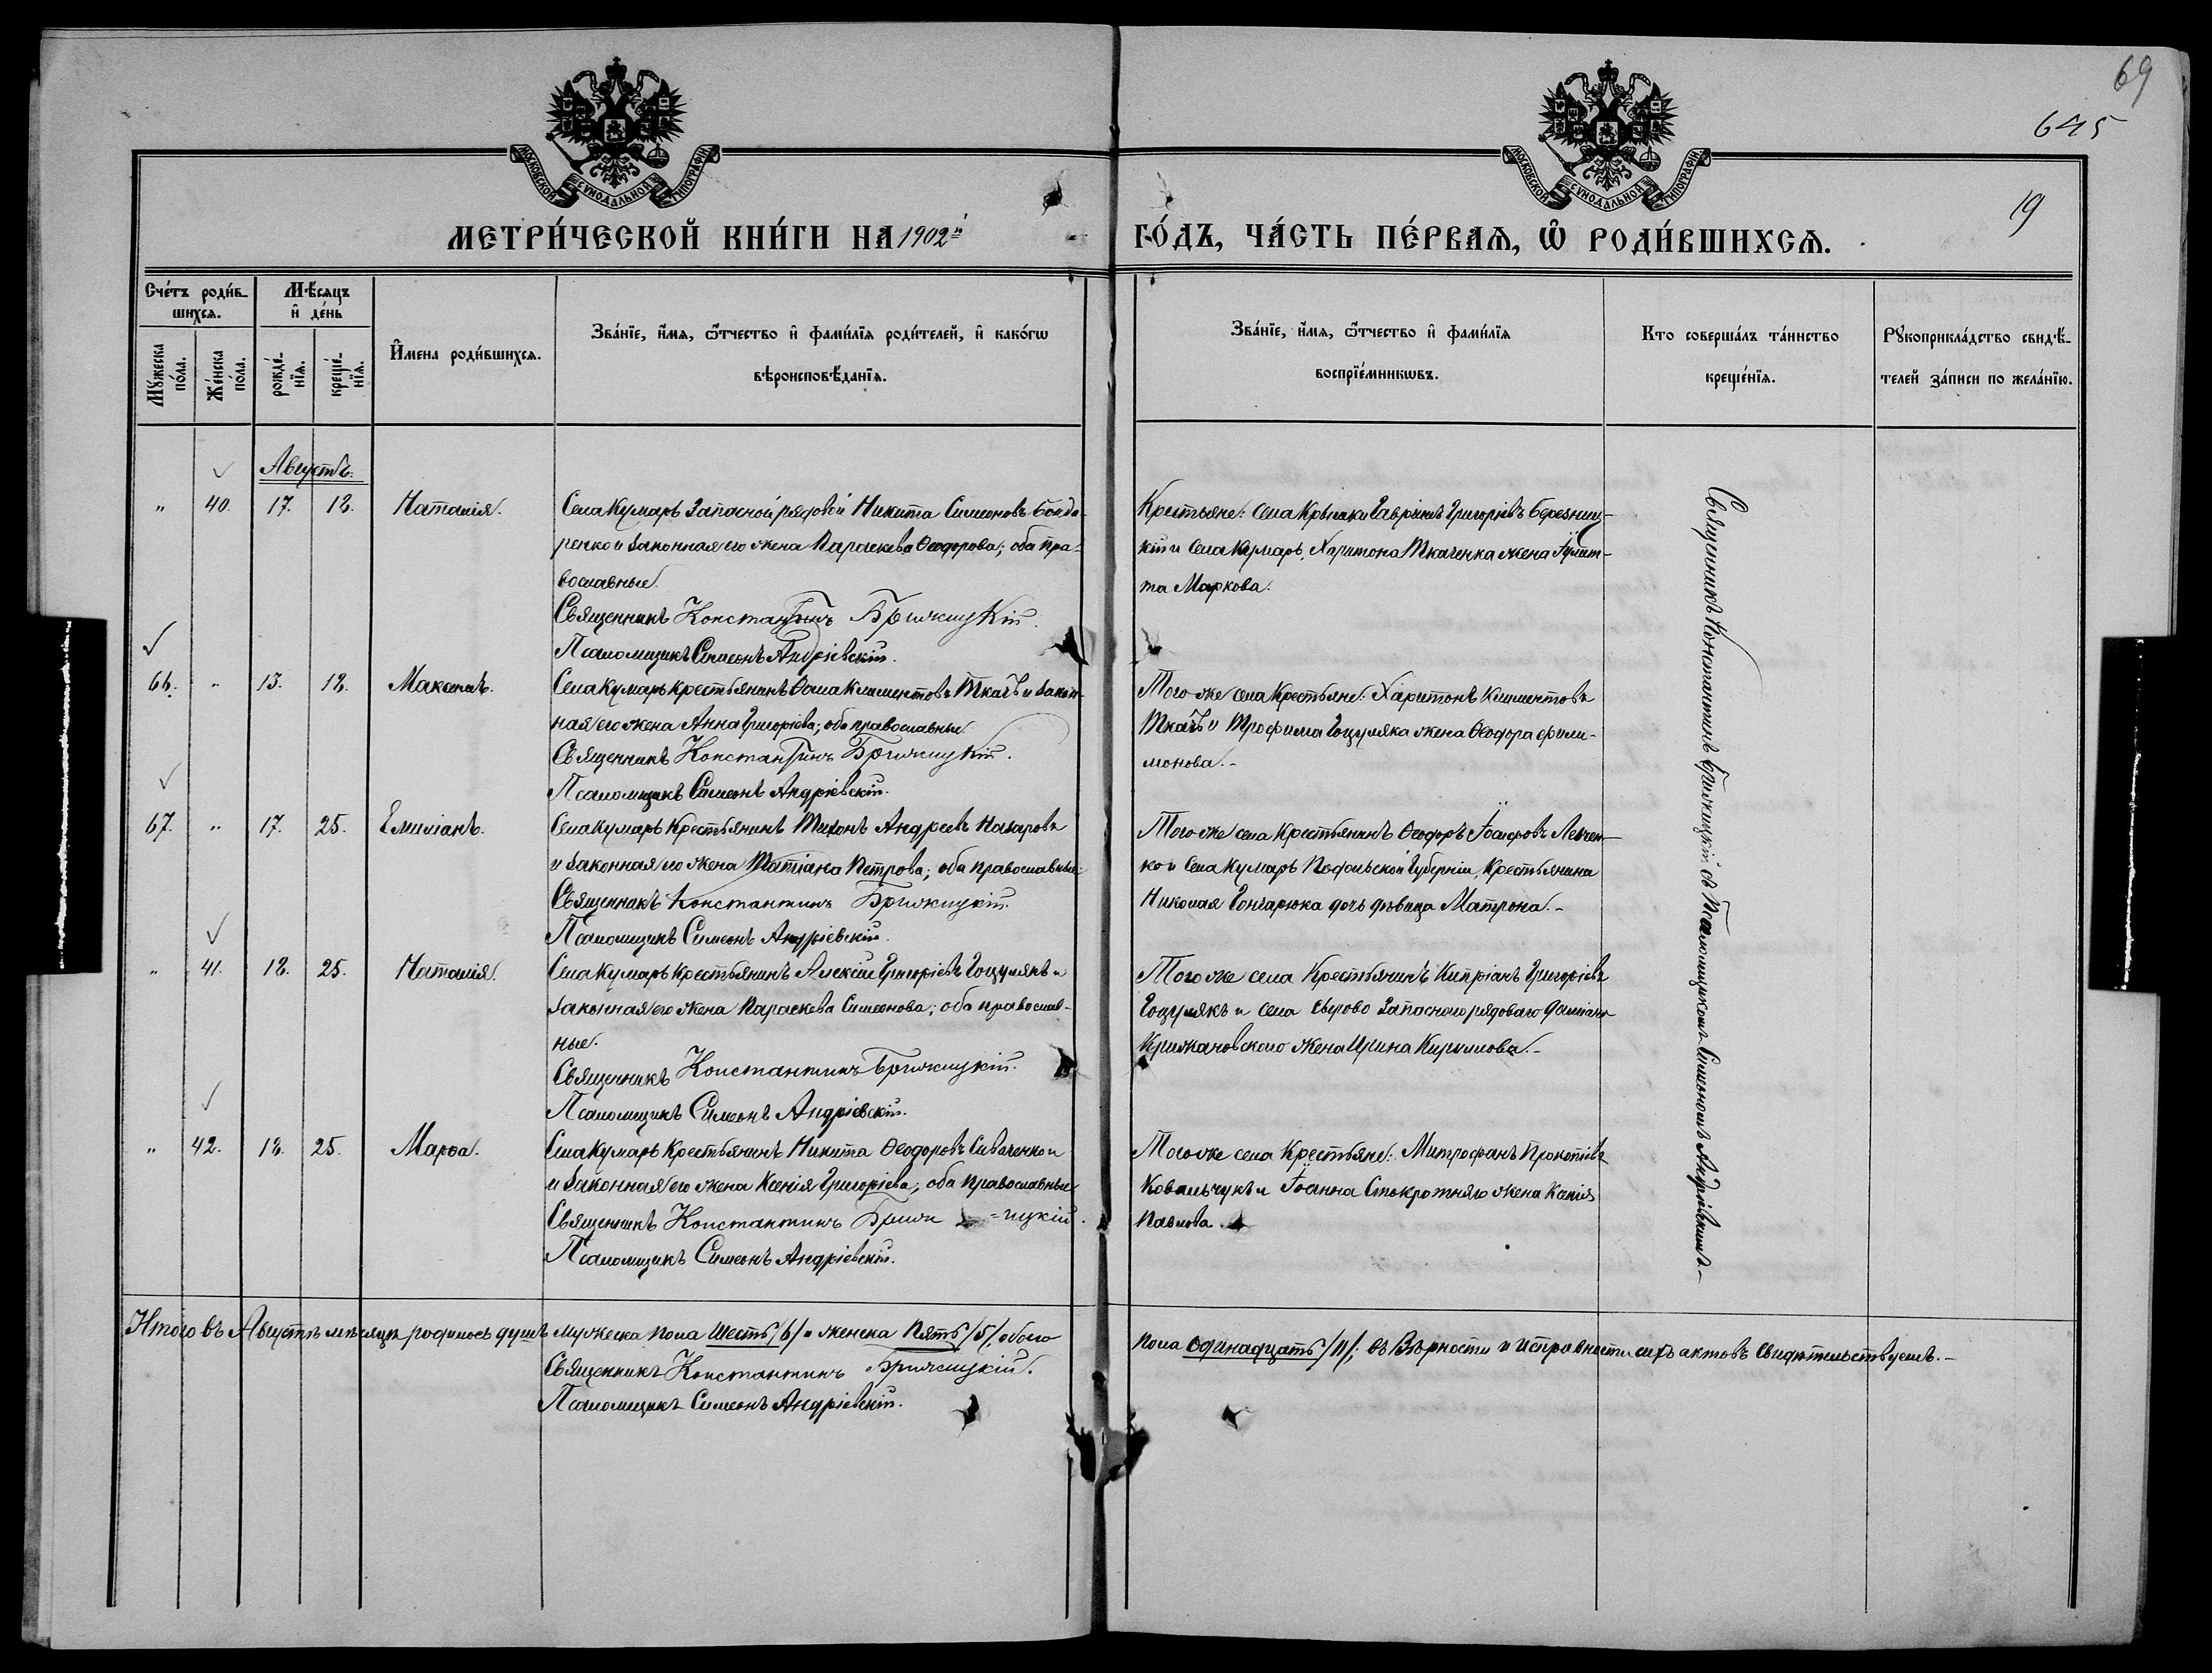 69
645
19
МОСКОВСКОЙ СѴНОДАЛЬНОЙ ТИПОГРАФІИ
МОСКОВСКОЙ СѴНОДАЛЬНОЙ ТИПОГРАФІИ
МЕТРИ́ЧЕСКОЙ КНИ́ГИ НА 1902й
ГО́ДЪ, ЧА́СТЬ ПЕ́РВАѦ, Ѡ҆ РОДИ́ВШИХСѦ.
Сче́тъ роди́в-
шихсѧ.
Мꙋ́жеска по́ла.
Же́нска по́ла.
Мѣ́сѧцъ
и҆ де́нь
рожде́-
нїѧ.
креще́-
нїѧ.
И҆мена роди́вшихсѧ.
Зва́нїе, и҆́мѧ, ѻ҆́тчество и҆ фами́лїѧ роди́телей, и҆ како́гѡ
вѣроисповѣ́данїѧ.
Зва́нїе, и҆́мѧ, ѻ҆́тчество и҆ фами́лїѧ
воспрїе́мникѡвъ.
Кто соверша́лъ та́инство
креще́нїѧ.
Рꙋкоприкла́дство свидѣ́-
телей за́писи по жела́нїю.
Августъ.
" 40. 17. 18. Наталія. Села Кумаръ Запасной рядовой Никита Симеоновъ Бонда-
ренко и законная его жена Параскева Ѳеодорова; оба пра-
вославные.
Священникъ Константинъ Бржицкій.
Псаломщикъ Симеонъ Андріевскій.
Крестьяне: села Гавріилъ Григоріевъ Березниц-
кій и села Кумаръ, Харитона Ткаченка жена Іулит-
та Маркова.
66. " 13. 18. Максимъ. Села Кумаръ крестьянинъ Ѳома Климентовъ Ткачъ и закон-
ная его жена Анна Григоріева; оба православные.
Священникъ Константинъ Бржицкій.
Псаломщикъ Симеонъ Андріевскій.
Того же села Крестьяне: Харитонъ Климентовъ
Ткачъ и Трофима Гоцуляка жена Ѳеодора Фили-
монова.-
67. " 17. 25. Емиліанъ. Села Кумаръ Крестьянинъ Тихонъ Андреевъ Назаровъ
и законная его жена Татіана Петрова; оба православные.
Священникъ Константинъ Бржицкій.
Псаломщикъ Симеонъ Андріевскій.
Того же села Крестьянинъ Ѳеодоръ Іосифовъ Левчен-
ко и села Кумаръ Подольской Губерніи, Крестьянина
Николая Гончарюка дочь дѣвица Матрона.-
" 41. 18. 25. Наталія. Села Кумаръ Крестьянинъ Алексій Григоріевъ Гоцулякъ и
законная его жена Параскева Симеонова; оба православ-
ные.
Священникъ Константинъ Бржицкій.
Псаломщикъ Симеонъ Андріевскій.
Того же села Крестьянинъ Кипріанъ Григоріевъ
Гоцулякъ и села Сырово Запасного рядоваго Даміана
Крижановского жена Ирина Кириллова.-
" 42. 18. 25. Марѳа. Села Кумаръ Крестьянинъ Никита Ѳеодоровъ Сиваченко и
и законная его жена Ксенія Григоріева; оба православные.
Священникъ Константинъ
Псаломщикъ Симеонъ Андріевскій.
Того же села Крестьяне: Митрофанъ Прокопіевъ
Ковальчукъ и Іоанна Стокротняго жена
Павлова.
Священникъ Константинъ Бржицкій съ Псаломщикомъ Симеономъ Андріевскимъ.-
Итого въ Августѣ мѣсяцѣ родилось душъ мужеска пола Шесть /6/ и женска Пять /5/, обоего
пола Одинадцать /11/; въ Вѣрности и исправности сихъ актовъ свидѣтельствуемъ.-
Священникъ Константинъ Бржицкій.
Псаломщикъ Симеонъ Андріевскій.